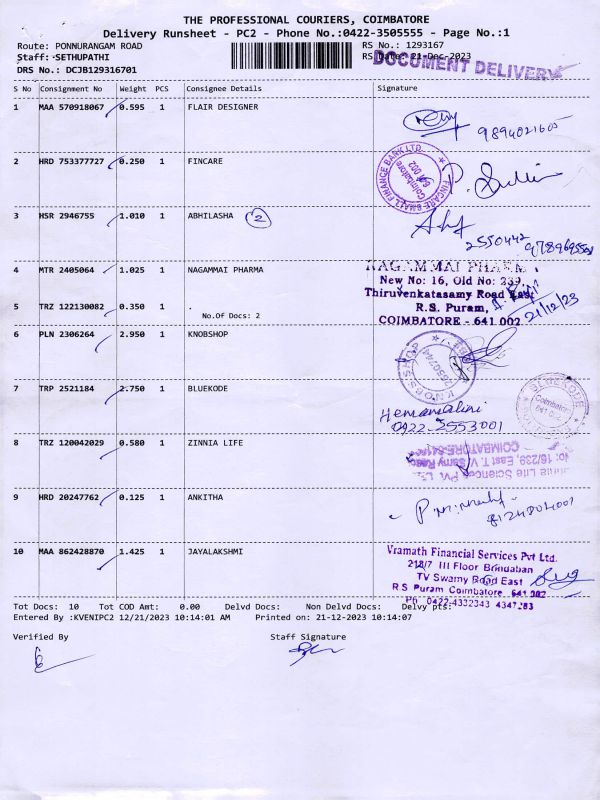 THE PROFESSIONAL COURIERS, COIMBATORE
Delivery Runsheet - PC2 - Phone No.:0422-3505555 - Page No.:1
Route: PONNURANGAM ROAD
RS No.: 1293167
Staff: SETHUPATHI
RS Date: 21-Dec-2023
DOCUMENT DELIVERY
DRS No.: DCJB129316701
S No Consignment No Weight PCS Consignee Details Signature
1 MAA 570918067 0.595 1 FLAIR DESIGNER
9894021605
2 HRD 753377727 0.250 1 FINCARE
FINCARE SMALL FINANCE BANK LTD.
Coimbatore
641 002
3 HSR 2946755 1.010 1 ABHILASHA 2
2550442
4 MTR 2405064 1.025 1 NAGAMMAI PHARMA
NAGAMMAI PHARMA
New No: 16, Old No: 239,
Thiruvenkatasamy Road East
R.S. Puram,
COIMBATORE - 641 002
21/12/23
5 TRZ 122130082 0.350 1 .
No.Of Docs: 2
6 PLN 2306264 2.950 1 KNOBSHOP
KNOBSSHOP
7 TRP 2521184 2.750 1 BLUEKODE
Hemamalini
0422-2553001
Coimbatore
8 TRZ 120042029 0.580 1 ZINNIA LIFE
Life Sciences Pvt. Ltd.
No: 16/239, East T.V. Samy Road
COIMBATORE-641
9 HRD 20247762 0.125 1 ANKITHA
10 MAA 862428870 1.425 1 JAYALAKSHMI
Vramath Financial Services Pvt Ltd.
218/7 III Floor Brindaban
TV Swamy Road East
R.S Puram Coimbatore 641 002
Ph 0422-4332343 4347283
Tot Docs: 10 Tot COD Amt: 0.00 Delvd Docs: Non Delvd Docs: Delvy pts:
Entered By :KVENIPC2 12/21/2023 10:14:01 AM Printed on: 21-12-2023 10:14:07
Verified By Staff Signature